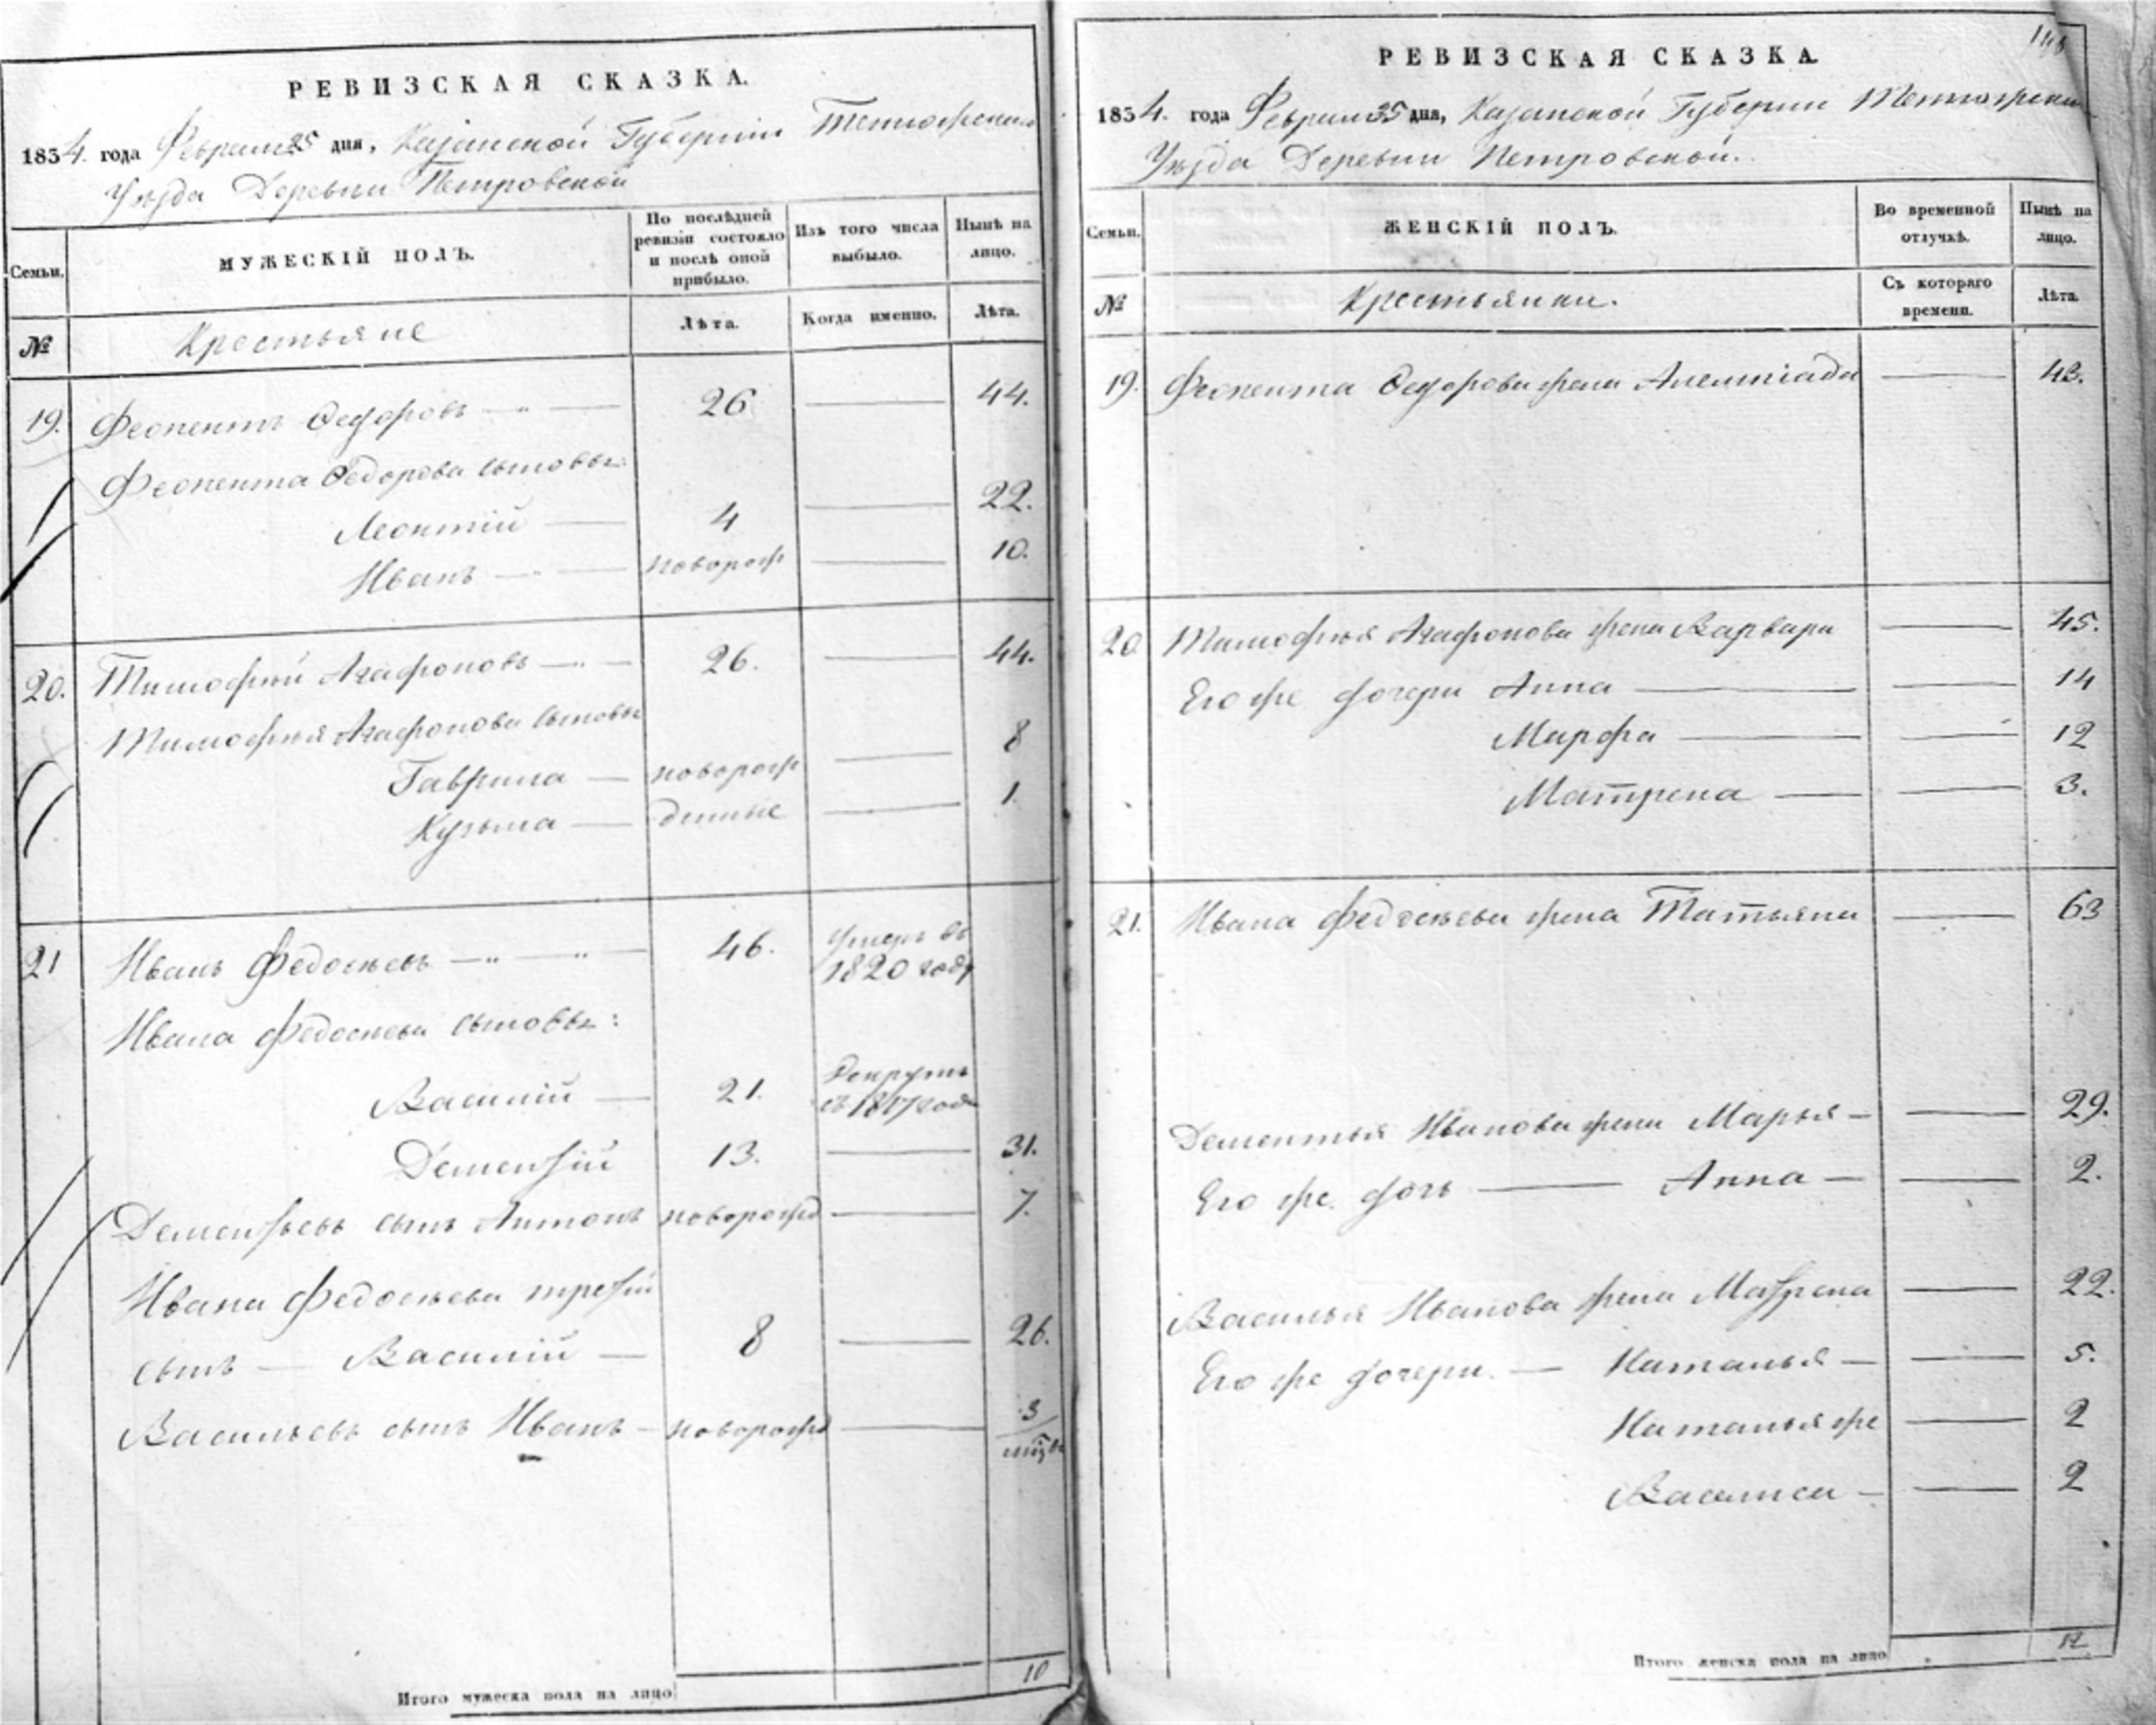 РЕВИЗСКАЯ СКАЗКА.
1834. года Февраля 25 дня, Казанской Губернiи
Уѣзда Деревни Петровской
Семьи.
МУЖЕСКІЙ ПОЛЪ.
По послѣдней ревизіи состояло и послѣ оной прибыло.
Изъ того числа выбыло.
Нынѣ на лицо.
№
Крестьяне
Лѣта.
Когда именно.
Лѣта.
19. Феопентъ Ѳедоровъ — 26 — 44.
Феопента Ѳедорова сыновья:
Леонтій — 4 — 22.
Иванъ — новорож — 10.
20. Тимофей Агафоновъ — 26. — 44.
Тимофея Агафонова сыновья
Гаврила — новорож — 8
Кузьма — денные — 1.
21 Иванъ Федосѣевъ — 46. Умеръ въ
1820 году
Ивана Федосѣева сыновья:
Василій — 21. Рекрутъ
съ 1817 года
Дементій 13. — 31.
Дементьевъ сынъ Антонъ новорожд — 7.
Ивана Федосѣева третій
сынъ — Василій — 8 — 26.
Васильевъ сынъ Иванъ — новорожд — 3
мѣ
Итого мужеска пола на лицо 10
148
РЕВИЗСКАЯ СКАЗКА.
1834. года Февраля 25 дня, Казанской Губернии
Уѣзда Деревни Петровской.
Семьи.
ЖЕНСКІЙ ПОЛЪ.
Во временной отлучкѣ.
Нынѣ на лицо.
№
Крестьянки.
Съ котораго времени.
Лѣта.
19. Феопента Ѳедорова жена — 43.
20 Тимофея Агафонова жена Варвара — 45.
Его же дочери Анна — 14
Марфа — 12
Матрена — 3.
21. Ивана Федосѣева жена Татьяна — 63
Дементья Иванова жена Марья — 29.
Его же дочь — Анна — 2.
Василья Иванова жена Матрена — 22.
Его же дочери. — Наталья — 5.
Наталья же — 2
Василиса — 2
Итого женска пола на лицо 12